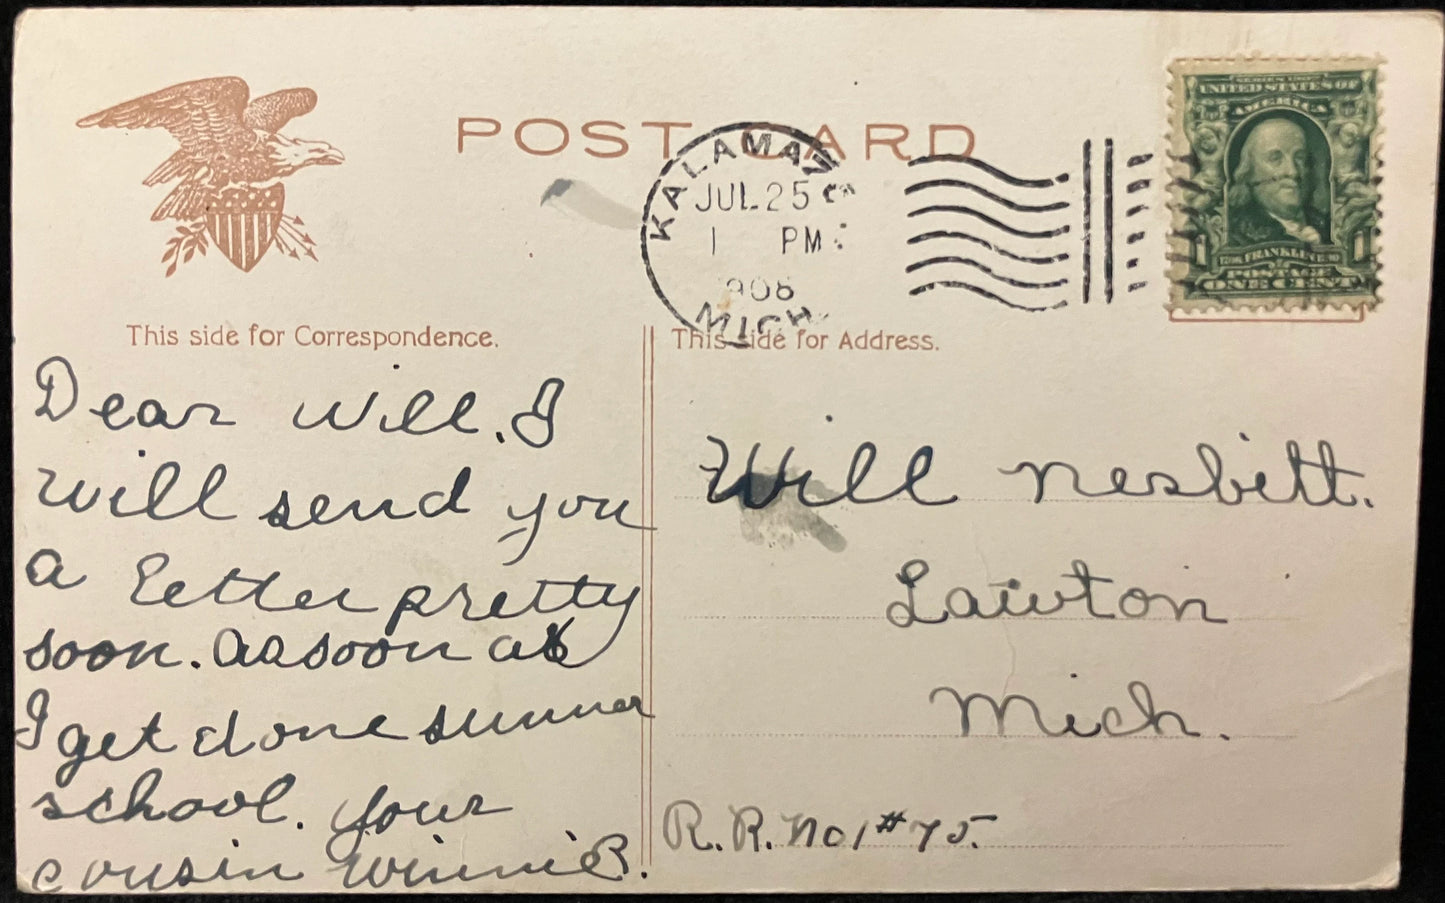 POST CARD
KALAMAZ
JUL 25
1 PM
908
MICH
SERIES 1902
UNITED STATES OF
AMERICA
1 FRANKLIN 1
POSTAGE
ONE CENT
This side for Correspondence.
Dear Will. I
will send you
a letter pretty
soon. As soon as
I get done summer
school. your
cousin Winnie B.
This side for Address.
Will Nesbitt.
Lawton
Mich.
R.R. No 1 # 75.